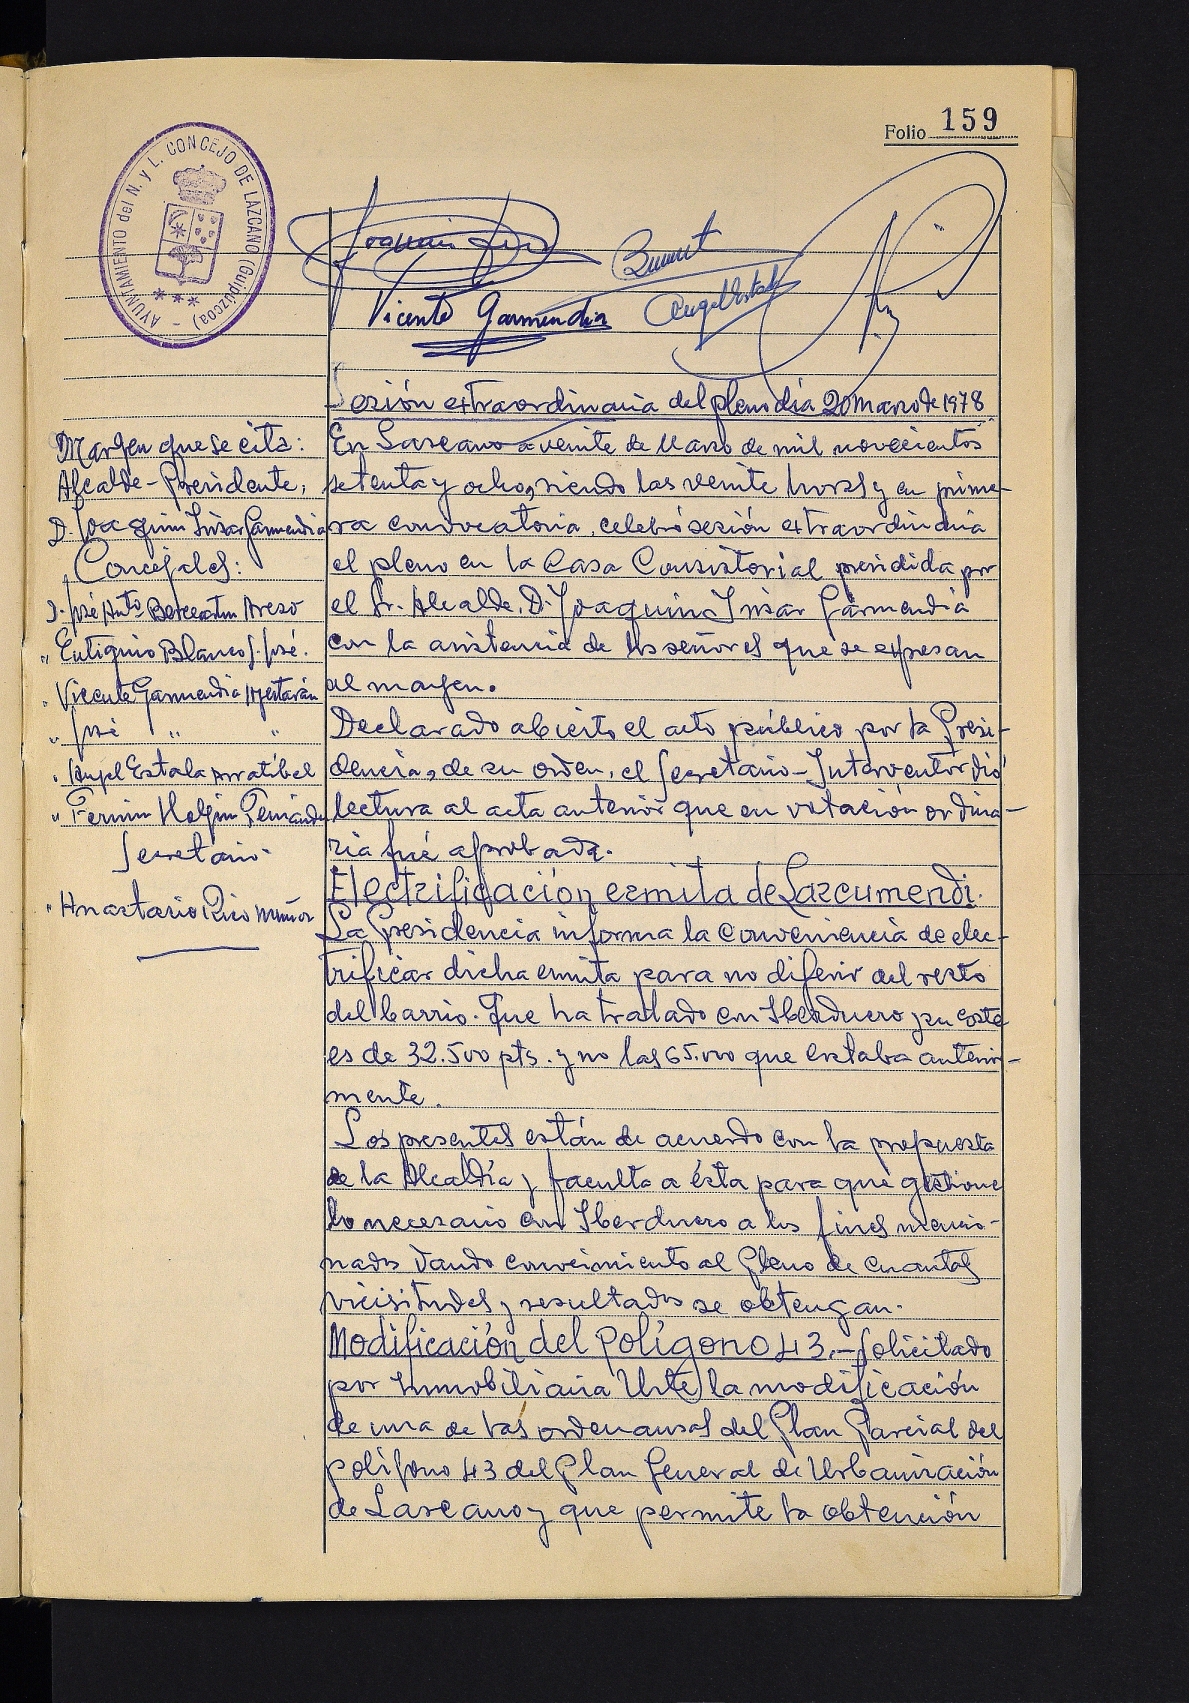 Folio 159
AYUNTAMIENTO del N. y L. CONCEJO DE LAZCANO (Guipúzcoa)
Joaquin
Vicente Garmendia
Angel Estala
Sesión extraordinaria del pleno día 20 Marzo de 1978
Margen que se cita:
Alcalde-Presidente,
D. Joaquin Insar Garmendia
Concejales:
D. José Antº Berceartu Areso
" Eutiquio Blanco S. José.
" Vicente Garmendia
" José " "
" Angel Estala Arratibel
" Fermin Holgin Fernández
Secretario
" Anastasio Rico Muñoz
En Lazcano a veinte de Marzo de mil novecientos
setenta y ocho, siendo las veinte horas y en prime-
ra convocatoria, celebró sesión extraordinaria
el pleno en la Casa Consistorial presidida por
el Sr. Alcalde, D. Joaquin Insar Garmendia
con la asistencia de los señores que se expresan
al margen.
Declarado abierto el acto público por la Presi-
dencia, de su orden, el Secretario-Interventor dió
lectura al acta anterior que en votación ordina-
ria fué aprobada.
Electrificación ermita de Lazcumendi.
La Presidencia informa la conveniencia de elec-
trificar dicha ermita para no diferir del resto
del barrio. Que ha tratado con Iberduero y su coste
es de 32.500 pts. y no las 65.000 que estaba anterior-
mente.
Los presentes están de acuerdo con la propuesta
de la Alcaldía y faculta a ésta para que gestione
lo necesario con Iberduero a los fines mencio-
nados dando conocimiento al Pleno de cuantas
vicisitudes y resultados se obtengan.
Modificación del Polígono 43.- Solicitado
por Inmobiliaria Urte la modificación
de una de las ordenanzas del Plan Parcial del
polígono 43 del Plan General de Urbanización
de Lazcano y que permite la obtención